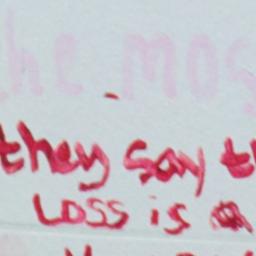 the mos
they say t
Loss is a